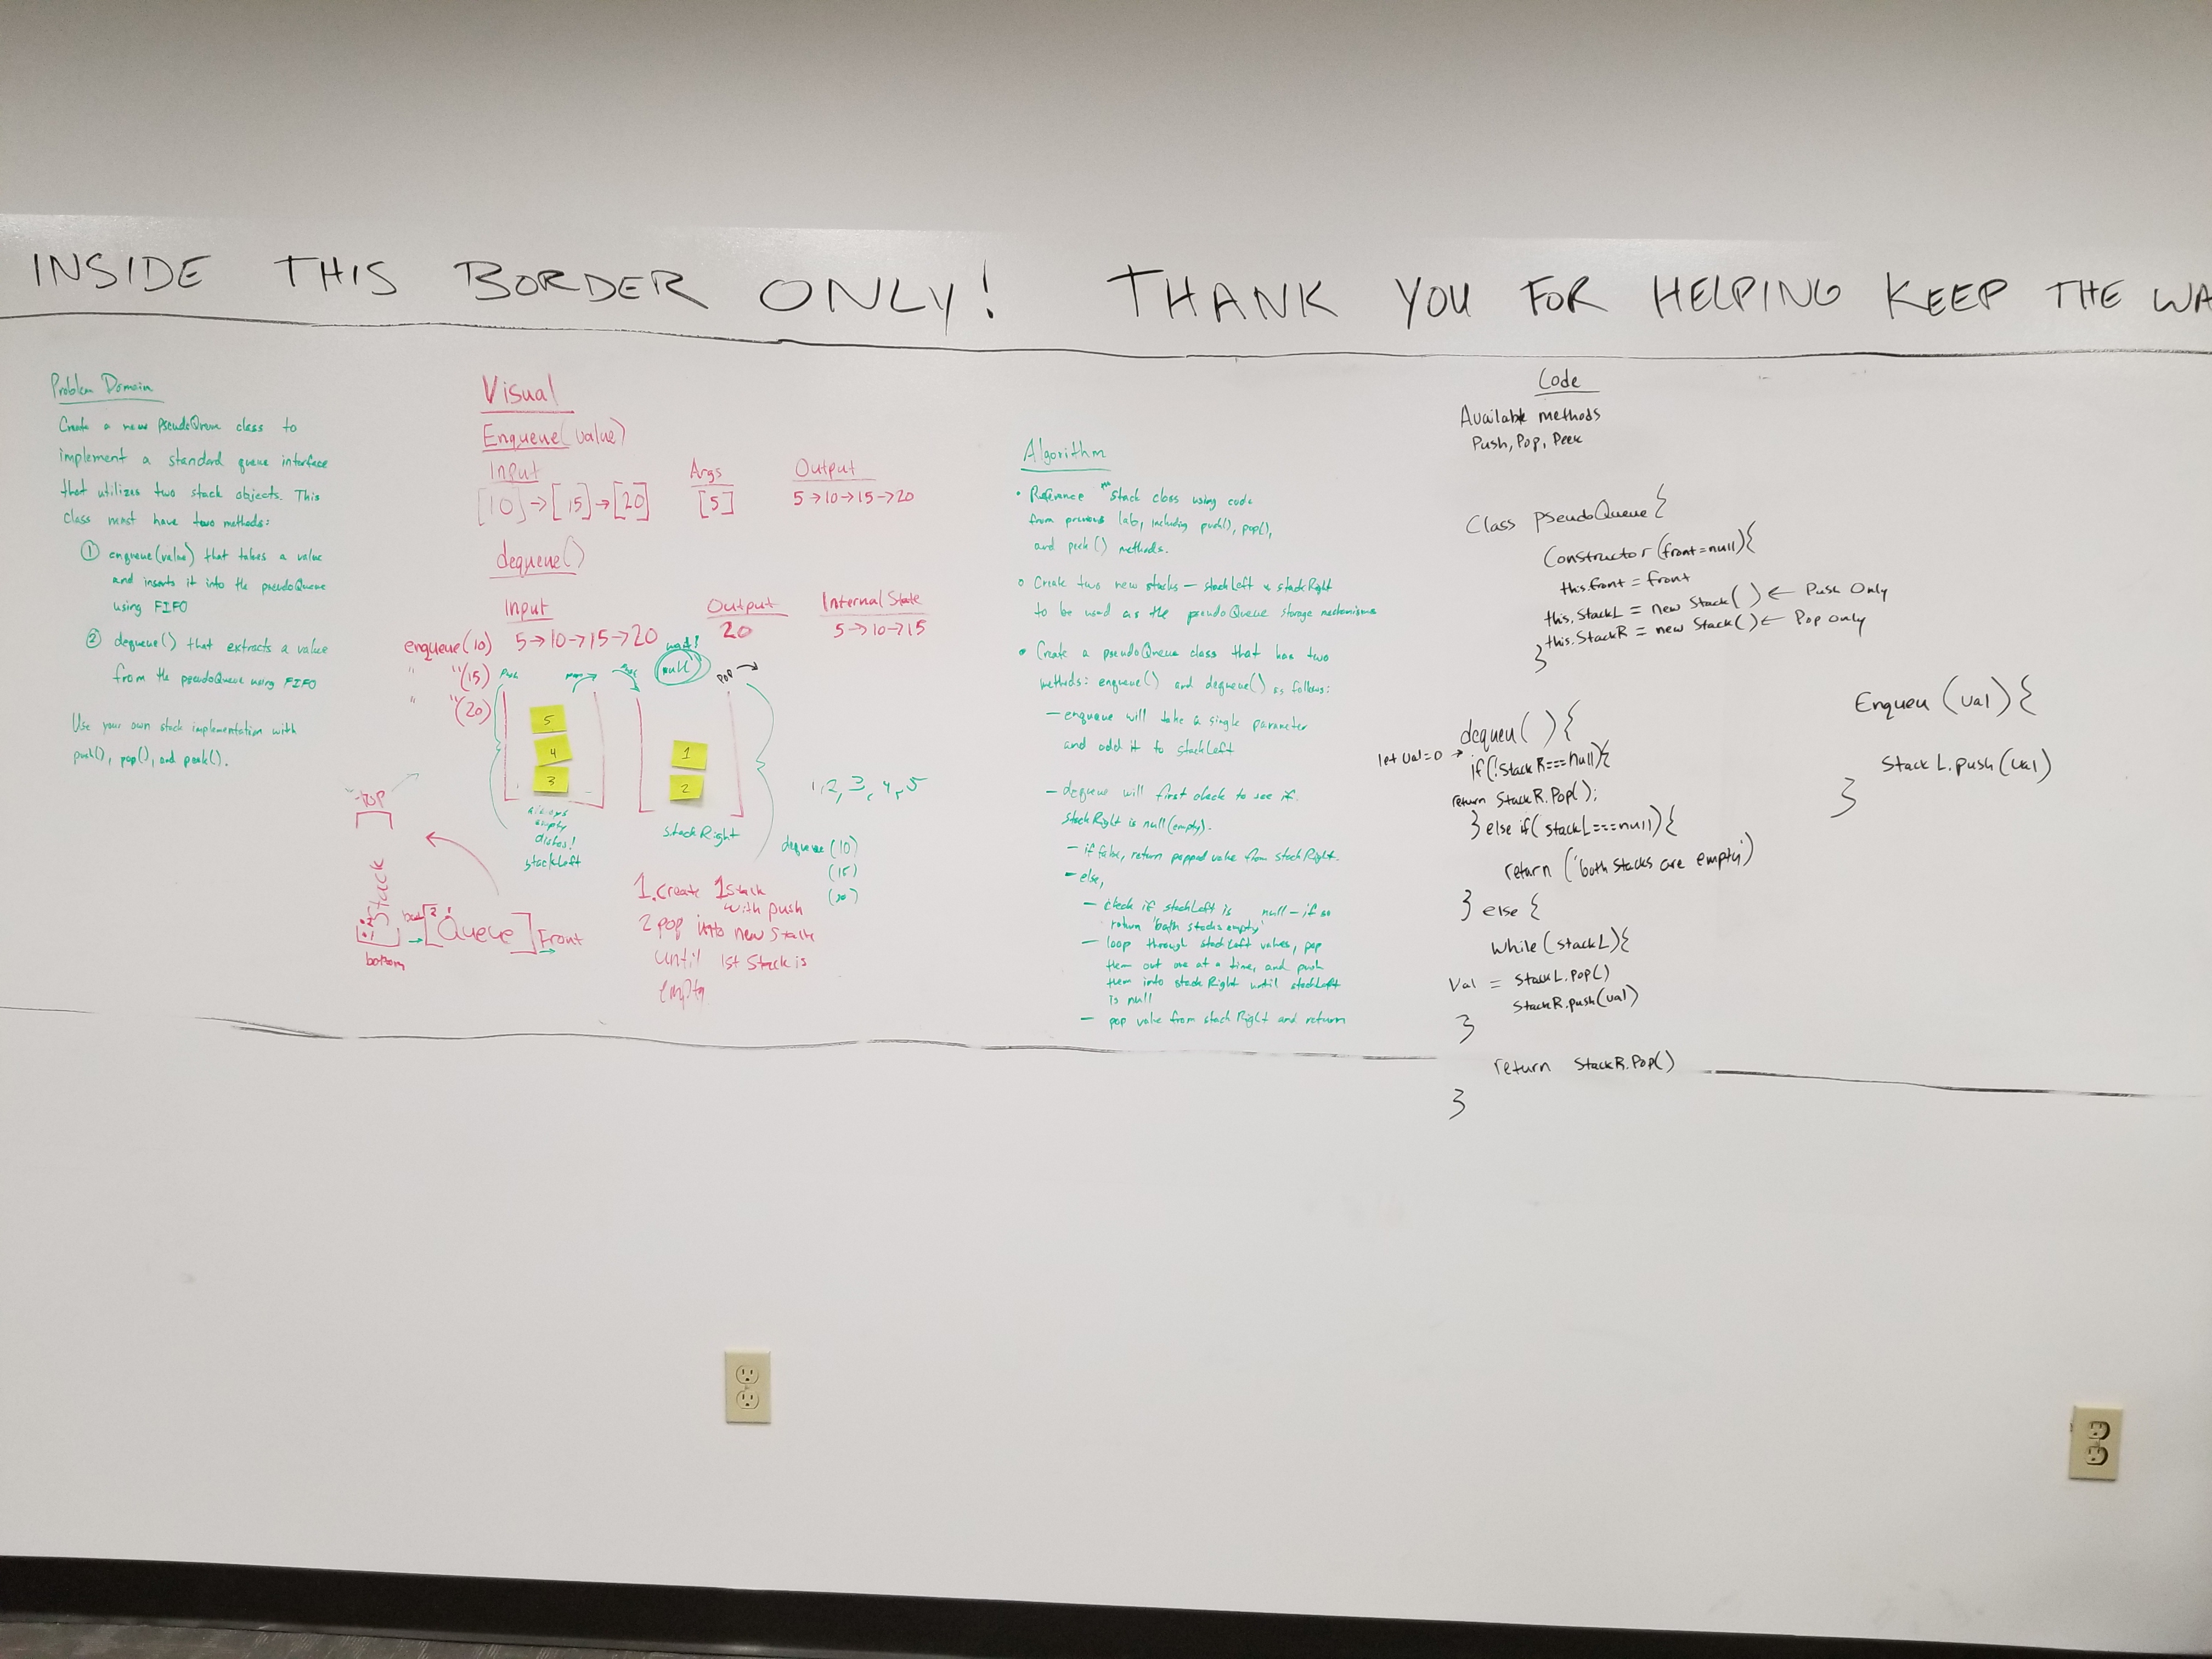 INSIDE THIS BORDER ONLY! THANK YOU FOR HELPING KEEP THE WA
Problem Domain
Create a new PseudoQueue class to
implement a standard queue interface
that utilizes two stack objects. This
class must have two methods:
① enqueue(value) that takes a value
and inserts it into the pseudoQueue
using FIFO
② dequeue() that extracts a value
from the pseudoQueue using FIFO
Use your own stack implementation with
push(), pop(), and peek().
Visual
Enqueue(value)
Input Args Output
[10]→[15]→[20] [5] 5→10→15→20
dequeue()
Input Output Internal State
5→10→15→20 20 5→10→15
enqueue(10)
" "(15)
" "(20)
Push
null
POP →
5
4
3
1
2
always
empty
stackLeft
stackRight
1,2,3,4,5
dequeue(10)
(15)
(20)
TOP
Stack
2
1
bottom
back [2 1 Queue ] Front
1. Create 1 Stack
with push
2 pop into new stack
until 1st Stack is
empty
Algorithm
• Reference Stack class using code
from previous lab, including push(), pop(),
and peek() methods.
• Create two new stacks — stackLeft & stackRight
to be used as the pseudoQueue storage mechanisms
• Create a pseudoQueue class that has two
methods: enqueue() and dequeue() as follows:
— enqueue will take a single parameter
and add it to stackLeft
— dequeue will first check to see if
stackRight is null (empty).
— if false, return popped value from stackRight.
— else,
— check if stackLeft is null — if so
return 'both stacks empty'
— loop through stackLeft values, pop
them out one at a time, and push
them into stackRight until stackLeft
is null
— pop value from stackRight and return
Code
Available methods
Push, Pop, Peek
Class PseudoQueue {
Constructor (front=null){
this.front = front
this.StackL = new Stack() ← Push Only
this.StackR = new Stack() ← Pop only
}
dequeu() {
let val=0 →
if(!StackR===null){
return StackR.Pop();
} else if( stackL===null){
return ('both stacks are empty')
} else {
while(stackL){
Val = StackL.Pop()
StackR.push(val)
}
return StackR.Pop()
}
Enqueu (val) {
StackL.push(val)
}